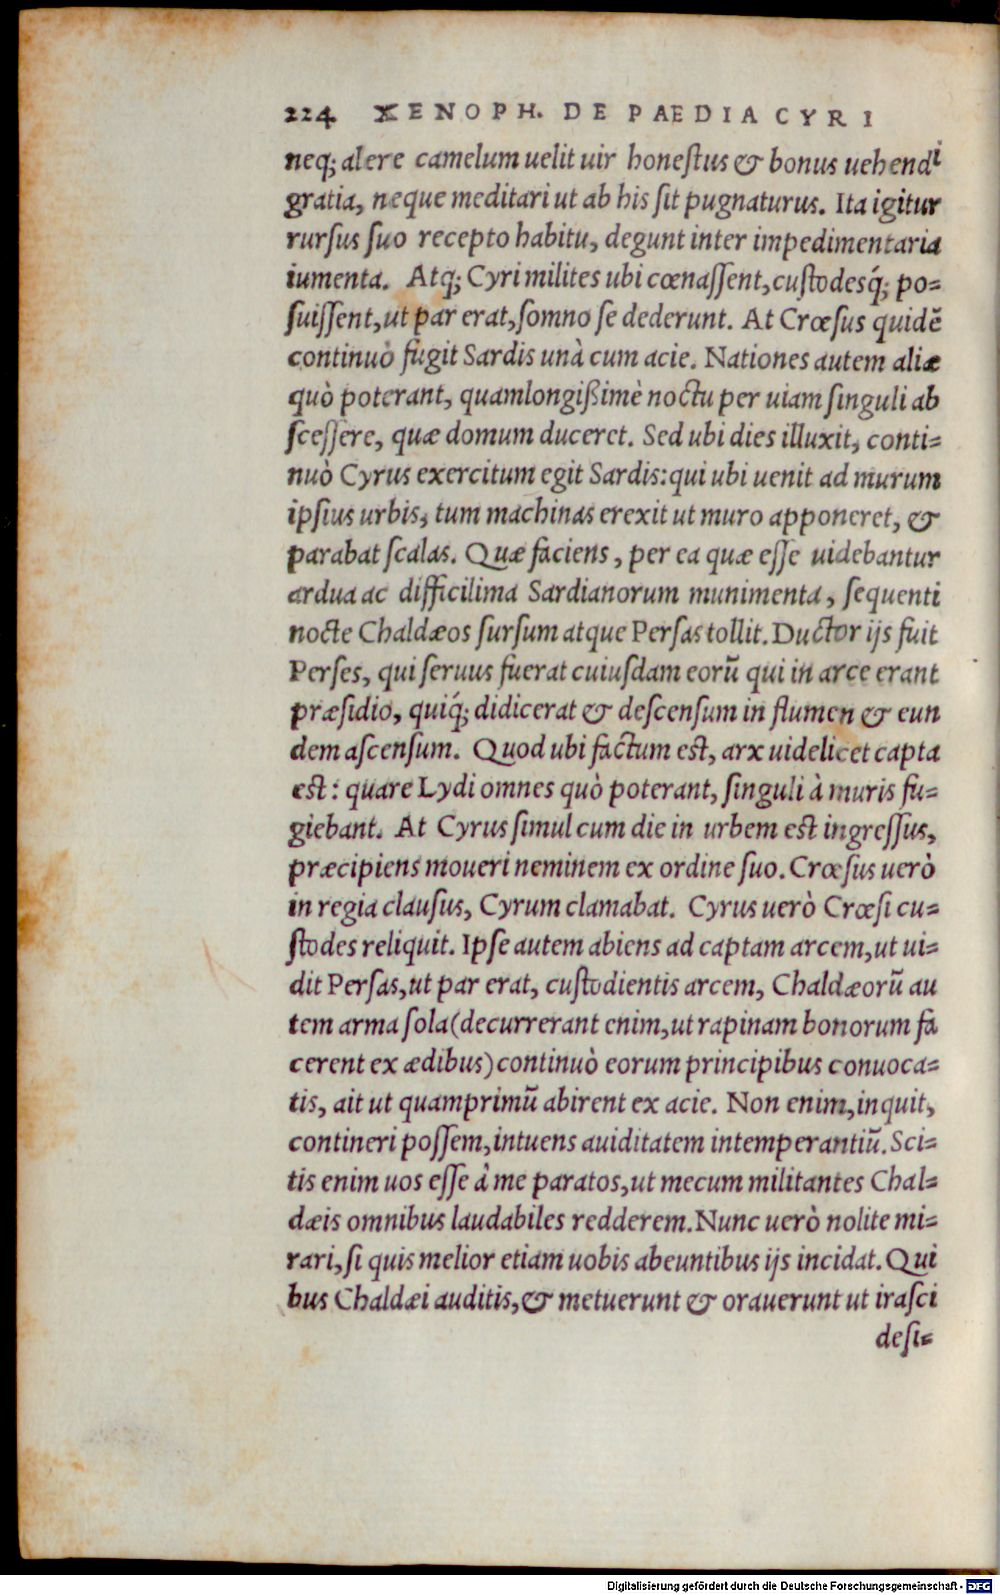 224 XENOPH. DE PAEDIA CYRI
neq; alere camelum uelit uir honeſtus & bonus uehendi
gratia, neque meditari ut ab his ſit pugnaturus. Ita igitur
rurſus ſuo recepto habitu, degunt inter impedimentaria
iumenta. Atq; Cyri milites ubi cœnaſſent, cuſtodesq́; po-
ſuiſſent, ut par erat, ſomno ſe dederunt. At Crœſus quidẽ
continuò fugit Sardis unà cum acie. Nationes autem aliæ
quò poterant, quamlongißimè noctu per uiam ſinguli ab
ſceſſere, quæ domum duceret. Sed ubi dies illuxit, conti-
nuò Cyrus exercitum egit Sardis: qui ubi uenit ad murum
ipſius urbis, tum machinas erexit ut muro apponeret, &
parabat ſcalas. Quæ faciens, per ea quæ eſſe uidebantur
ardua ac difficilima Sardianorum munimenta, ſequenti
nocte Chaldæos ſurſum atque Perſas tollit. Ductor ijs fuit
Perſes, qui ſeruus fuerat cuiuſdam eorũ qui in arce erant
præſidio, quiq́; didicerat & deſcenſum in flumen & eun
dem aſcenſum. Quod ubi factum eſt, arx uidelicet capta
eſt: quare Lydi omnes quò poterant, ſinguli à muris fu-
giebant. At Cyrus ſimul cum die in urbem eſt ingreſſus,
præcipiens moueri neminem ex ordine ſuo. Crœſus uerò
in regia clauſus, Cyrum clamabat. Cyrus uerò Crœſi cu-
ſtodes reliquit. Ipſe autem abiens ad captam arcem, ut ui-
dit Perſas, ut par erat, cuſtodientis arcem, Chaldæorũ au
tem arma ſola (decurrerant enim, ut rapinam bonorum fa
cerent ex ædibus) continuò eorum principibus conuoca-
tis, ait ut quamprimũ abirent ex acie. Non enim, inquit,
contineri poſſem, intuens auiditatem intemperantiũ. Sci-
tis enim uos eſſe à me paratos, ut mecum militantes Chal-
dæis omnibus laudabiles redderem. Nunc uerò nolite mi-
rari, ſi quis melior etiam uobis abeuntibus ijs incidat. Qui
bus Chaldæi auditis, & metuerunt & orauerunt ut iraſci
deſi-
Digitalisierung gefördert durch die Deutsche Forschungsgemeinschaft - DFG